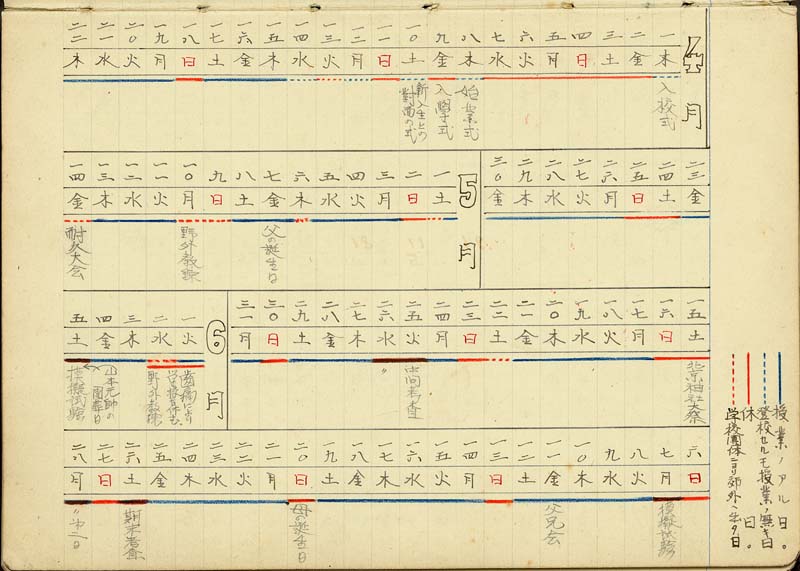 4月
一 二 三 四 五 六 七 八 九 一〇 一一 一二 一三 一四 一五 一六 一七 一八 一九 二〇 二一 二二
木 金 土 日 月 火 水 木 金 土 日 月 火 水 木 金 土 日 月 火 水 木
入校式
始業式
入学式
新入生との
対面の式
二三 二四 二五 二六 二七 二八 二九 三〇
金 土 日 月 火 水 木 金
5月
一 二 三 四 五 六 七 八 九 一〇 一一 一二 一三 一四
土 日 月 火 水 木 金 土 日 月 火 水 木 金
父の誕生日
野外教練
耐久大会
一五 一六 一七 一八 一九 二〇 二一 二二 二三 二四 二五 二六 二七 二八 二九 三〇 三一
土 日 月 火 水 木 金 土 日 月 火 水 木 金 土 日 月
神社大祭
中間考査
〃
6月
一 二 三 四 五
火 水 木 金 土
野外教練
山本元帥の
国葬日
模擬試験
六 七 八 九 一〇 一一 一二 一三 一四 一五 一六 一七 一八 一九 二〇 二一 二二 二三 二四 二五 二六 二七 二八
日 月 火 水 木 金 土 日 月 火 水 木 金 土 日 月 火 水 木 金 土 日 月
模擬試験
父兄会
母の誕生日
期末考査
〃第二日
授業ノアル日。
登校セルモ授業ノ無キ日
休日。
学校団体ニヨリ郊外ヘ出タ日